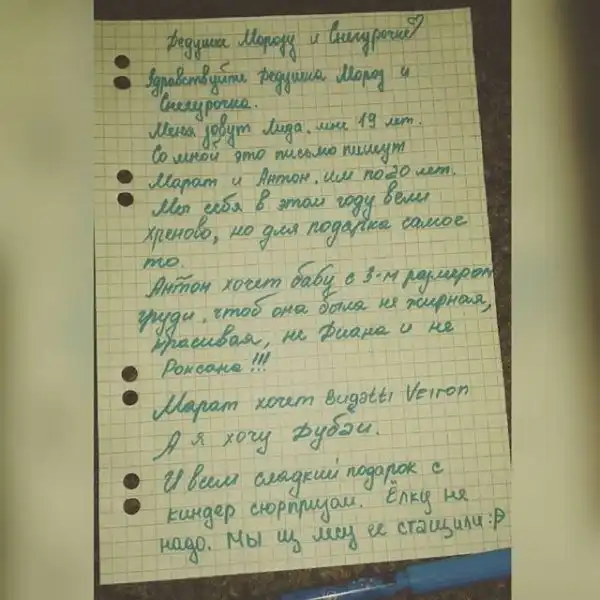 Дедушке Морозу и Снегурочке♡
Здравствуйте Дедушка Мороз и
Снегурочка.
Меня зовут Лида, мне 19 лет.
Со мной это письмо пишут
Марат и Антон, им по 20 лет.
Мы себя в этом году вели
хреново, но для подарка самое
то.
Антон хочет бабу с 3-м размером
груди, чтоб она была не жирная,
красивая, не Диана и не
Роксана!!!
Марат хочет Bugatti Veiron
А я хочу Дубаи.
И всем сладкий подарок с
киндер сюрпризом. Ёлку не
надо. Мы из лесу её стащили :Р